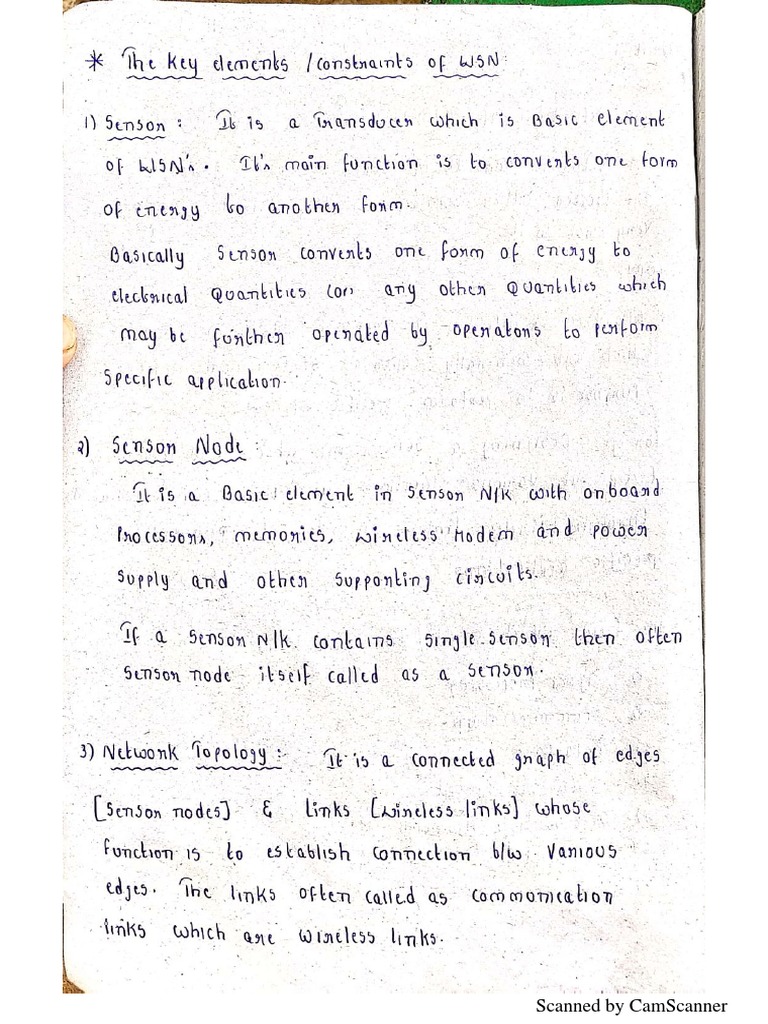 * The Key elements / constraints of WSN:
1) Sensor : It is a Transducer which is Basic element
of WSN's. It's main function is to converts one form
of energy to another form.
Basically Sensor converts one form of energy to
electrical Quantities (or) any other Quantities which
may be further operated by operators to perform
Specific application.
2) Sensor Node :
It is a Basic element in Sensor N/k with onboard
Processors, memories, wireless Modem and power
supply and other supporting circuits.
If a sensor N/k contains single sensor then often
sensor node itself called as a sensor.
3) Network Topology :- It is a connected graph of edges
[Sensor nodes] & links [wireless links] whose
function is to establish connection b/w various
edges. The links often called as communication
links which are wireless links.
Scanned by CamScanner